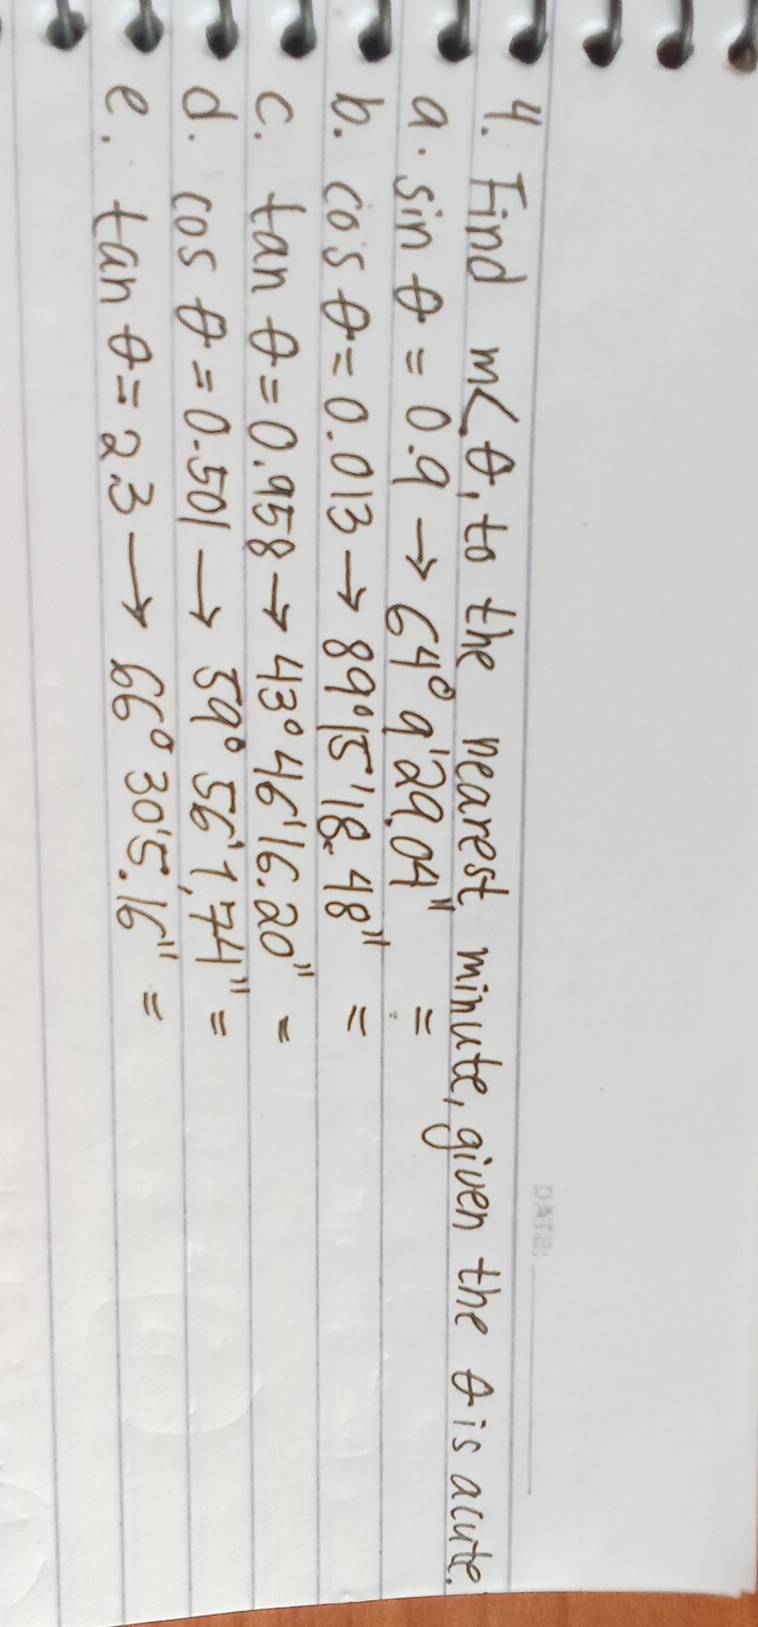 DATE:
4. Find m<θ, to the nearest minute, given the θ is acute.
a. sin θ = 0.9 → 64° 9'29.04" =
b. cos θ = 0.013 → 89°15'18.48" =
c. tan θ = 0.958 → 43° 46'16.20" -
d. cos θ = 0.501 → 59° 56'1,74" =
e. tan θ = 2.3 → 66° 30'5.16" =